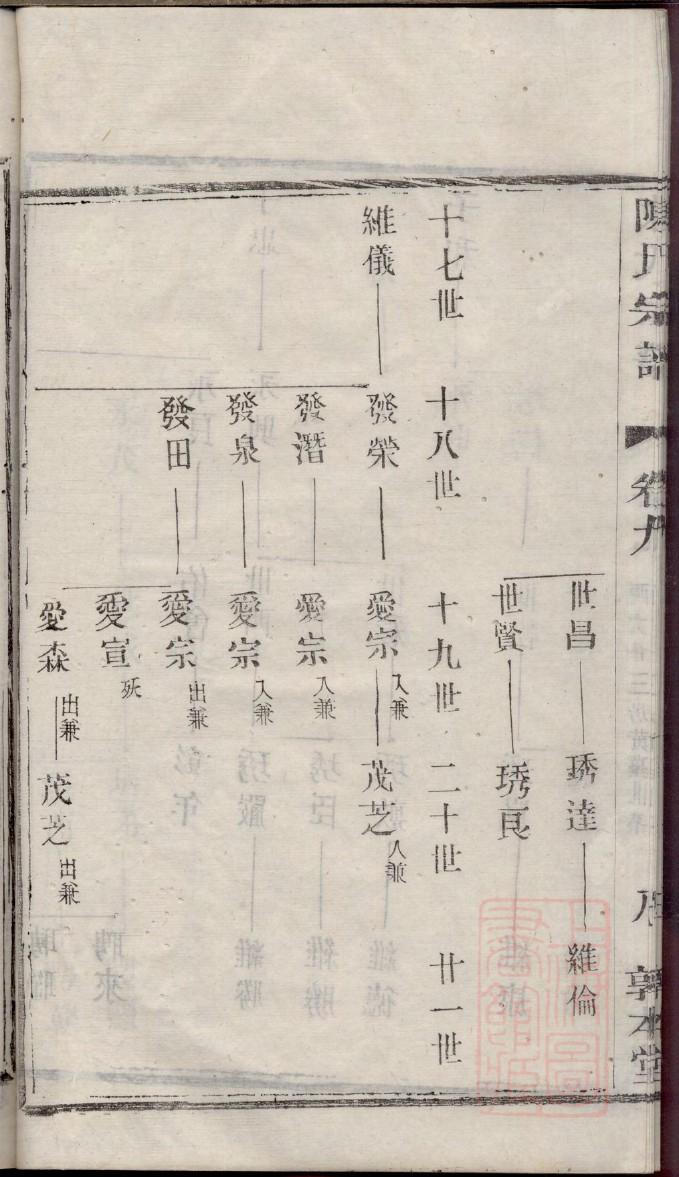 陳氏宗譜
卷九
敦本堂
世昌 琇達 維倫
世賢 琇良
十七世 十八世 十九世 二十世 廿一世
維儀 發榮 愛宗入兼 茂芝入兼
發潛 愛宗入兼
發泉 愛宗入兼
發田 愛宗出兼
愛宣殀
愛森出兼 茂芝出兼